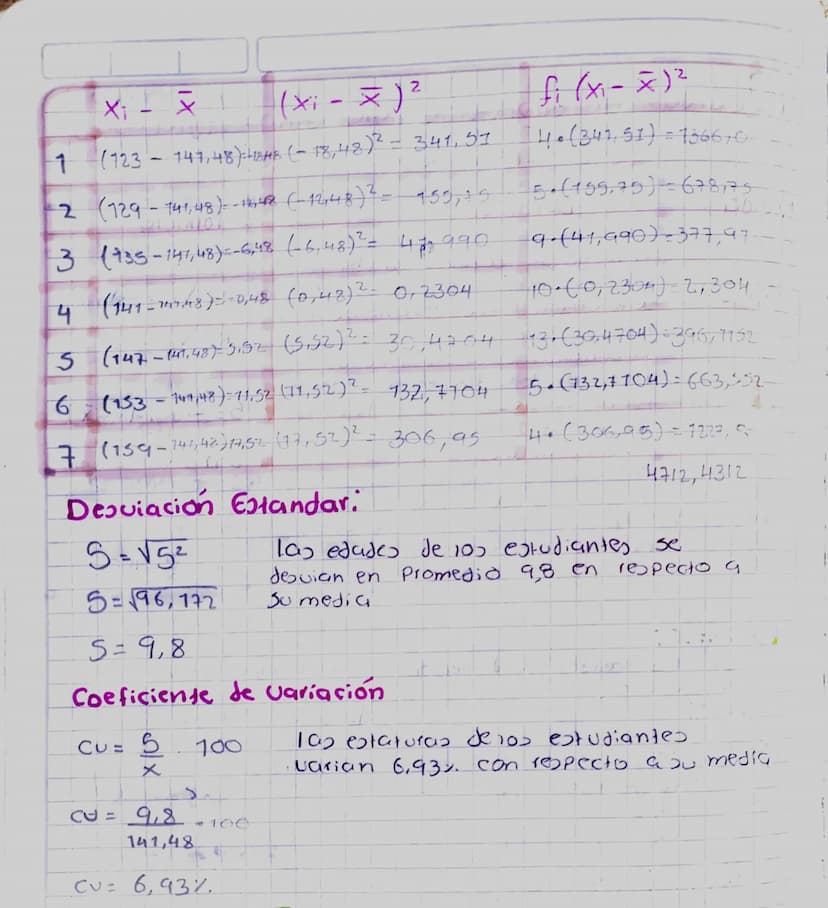 xi - x̄ (xi - x̄)² fi (xi - x̄)²
1 (123 - 141,48)=-18,48 (-18,48)² = 341,51 4•(341,51) = 1366,0
2 (129 - 141,48)=-12,48 (-12,48)² = 155,75 5•(155,75) = 678,75
3 (135 - 141,48)=-6,48 (-6,48)² = 41,990 9•(41,990) = 377,91
4 (141 - 141,48)=-0,48 (0,48)² = 0,2304 10•(0,2304) = 2,304
5 (147 - 141,48)= 5,52 (5,52)² = 30,4704 13•(30,4704) = 396,1152
6 (153 - 141,48)=11,52 (11,52)² = 132,7104 5•(132,7104) = 663,552
7 (159 - 141,48) 17,52 (17,52)² = 306,95 4•(306,95) =
4712,4312
Desviación Estandar:
S = √S²
S = √96,172
S = 9,8
las edades de los estudiantes se
desvian en Promedio 9,8 en respecto a
su media
Coeficiente de variación
CV = S/x . 100
las estaturas de los estudiantes
varian 6,93% con respecto a su media
CV = 9,8/141,48 • 100
CV = 6,93%.